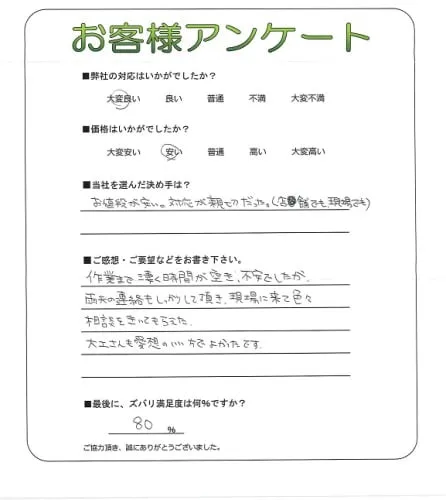 お客様アンケート
■弊社の対応はいかがでしたか？
大変良い 良い 普通 不満 大変不満
■価格はいかがでしたか？
大変安い 安い 普通 高い 大変高い
■当社を選んだ決め手は？
お値段が安い。対応が親切だった。(店舗でも現場でも)
■ご感想・ご要望などをお書き下さい。
作業まで凄く時間が空き、不安でしたが、
雨天の連絡もしっかりして頂き、現場に来て色々
相談をきいてもらえた。
大工さんも愛想のいい方でよかったです。
■最後に、ズバリ満足度は何%ですか？
80 %
ご協力頂き、誠にありがとうございました。